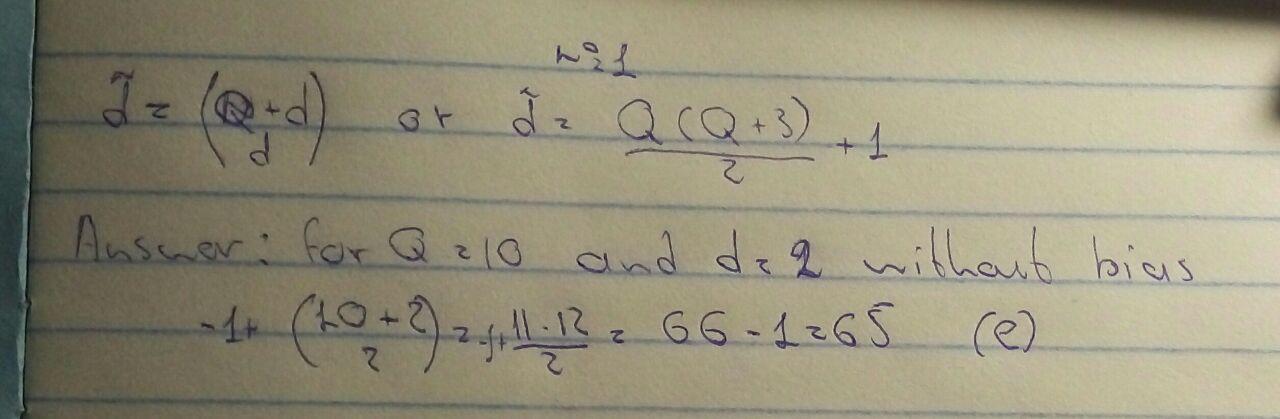 №1
d̃ = (Q+d / d) or d̃ = Q(Q+3)/2 + 1
Answer: for Q=10 and d=2 without bias
-1+ (10+2 / 2) = -1+ 11·12/2 = 66-1=65 (e)